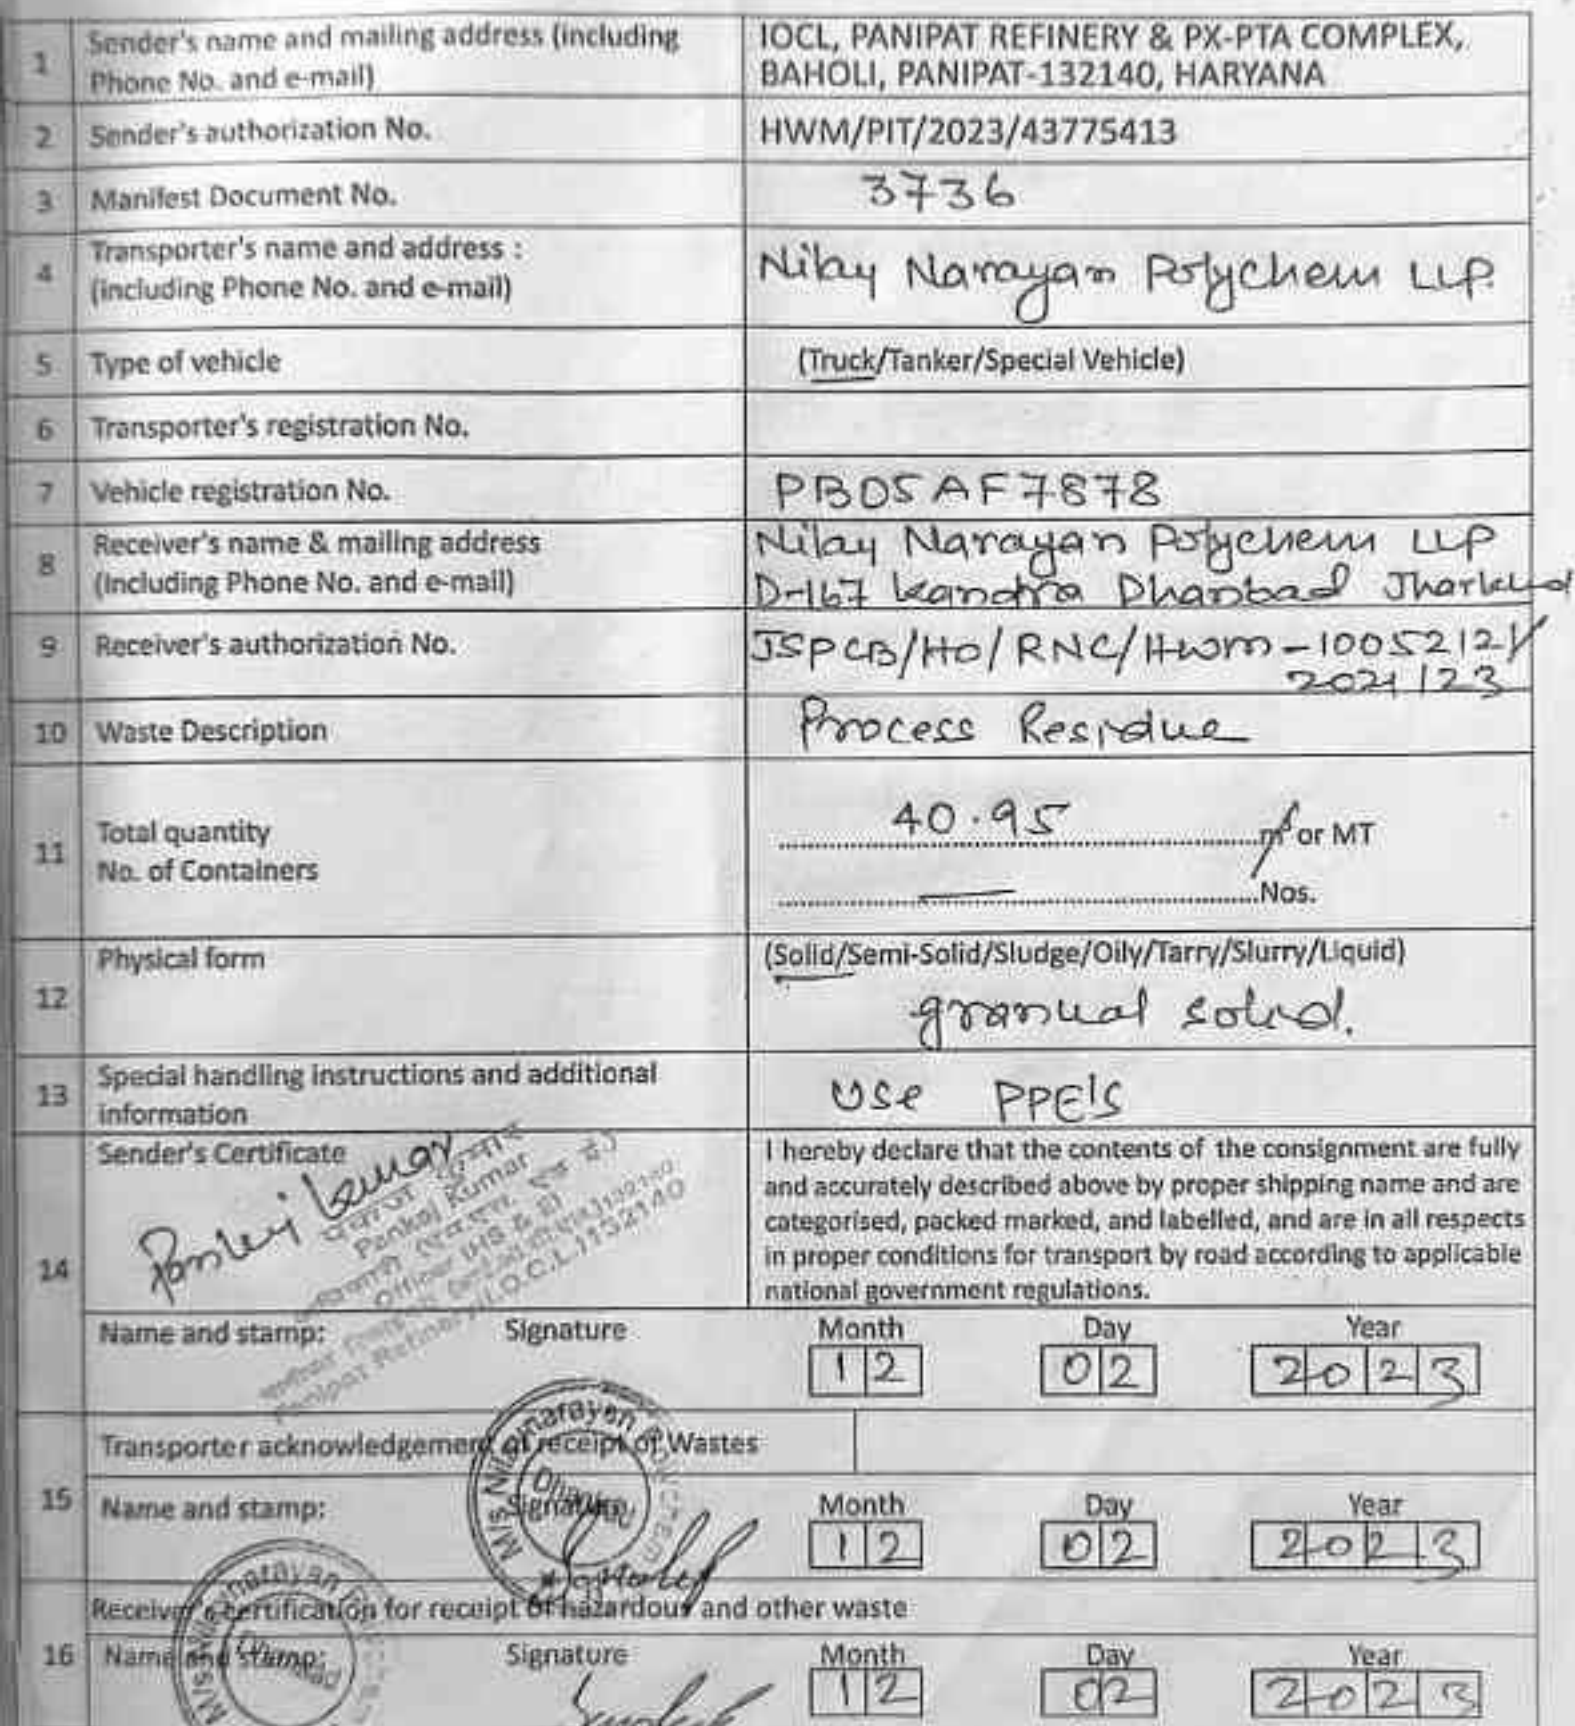 1 Sender's name and mailing address (including Phone No. and e-mail)
IOCL, PANIPAT REFINERY & PX-PTA COMPLEX,
BAHOLI, PANIPAT-132140, HARYANA
2 Sender's authorization No. HWM/PIT/2023/43775413
3 Manifest Document No. 3736
4 Transporter's name and address :
(including Phone No. and e-mail)
Nilay Narayan Polychem LLP.
5 Type of vehicle (Truck/Tanker/Special Vehicle)
6 Transporter's registration No.
7 Vehicle registration No. PB05AF7878
8 Receiver's name & mailing address
(Including Phone No. and e-mail)
Nilay Narayan Polychem LLP
D-167 Kandra Dhanbad Jharkhand
9 Receiver's authorization No. JSPCB/HO/RNC/HWM-10052121/
2021/23
10 Waste Description Process Residue
11 Total quantity
No. of Containers
40.95 m³ or MT
Nos.
12 Physical form (Solid/Semi-Solid/Sludge/Oily/Tarry/Slurry/Liquid)
granual solid.
13 Special handling instructions and additional
information
Use PPE's
14 Sender's Certificate
Pankaj Kumar
पंकज कुमार
Pankaj Kumar
Officer (HS & E)
Panipat Refinery (I.O.C.L.) 132140
I hereby declare that the contents of the consignment are fully
and accurately described above by proper shipping name and are
categorised, packed marked, and labelled, and are in all respects
in proper conditions for transport by road according to applicable
national government regulations.
Name and stamp: Signature Month Day Year
12 02 2023
15 Transporter acknowledgement of receipt of Wastes
M/s Nilaynarayan Polychem
Dhanbad
Name and stamp: Signature Month Day Year
12 02 2023
16 Receiver's certification for receipt of hazardous and other waste
M/s Nilaynarayan
Dhanbad
Name and stamp: Signature Month Day Year
12 02 2023